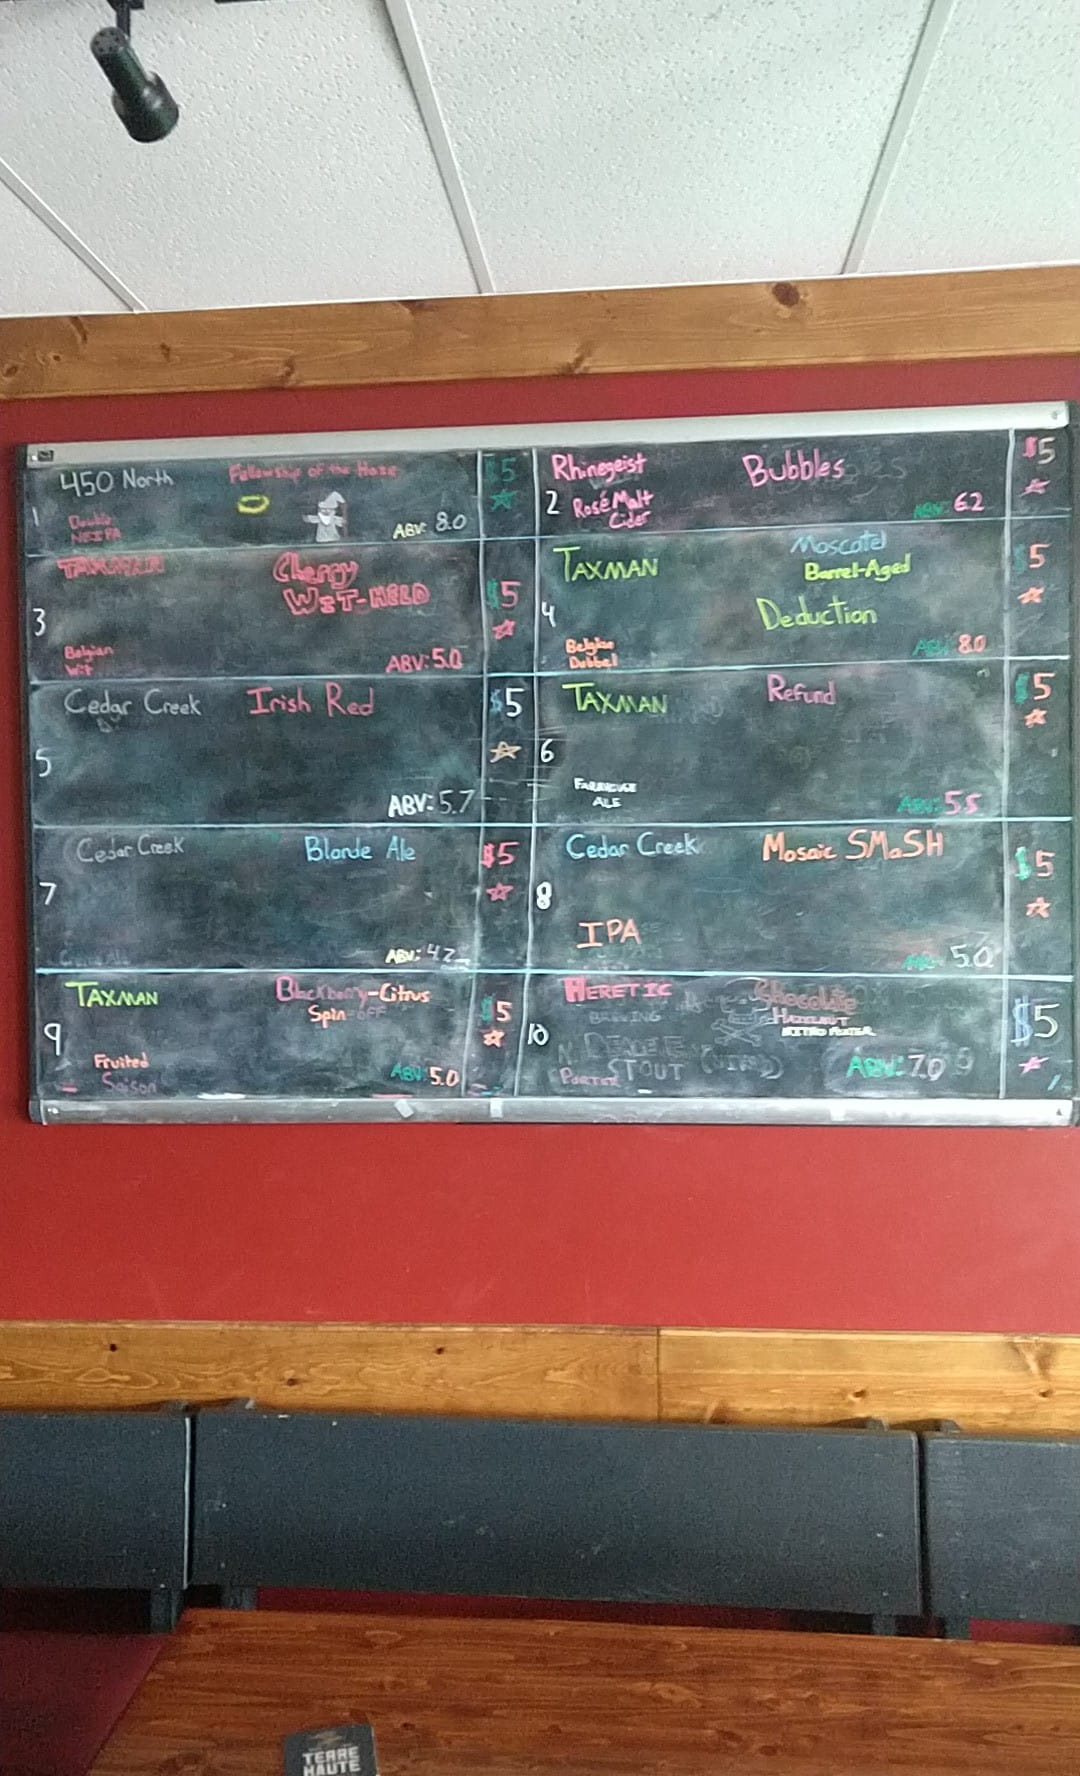 450 North Fellowship of the Haze $5
1 Double
NEIPA ABV: 8.0
Rhinegeist Bubbles $5
2 Rosé Malt
Cider ABV: 6.2
TAXMAN Cherry
WIT-HELD $5
3
Belgian
Wit ABV: 5.0
TAXMAN Moscatel
Barrel-Aged $5
4 Deduction
Belgian
Dubbel ABV: 8.0
Cedar Creek Irish Red $5
5
ABV: 5.7
TAXMAN Refund $5
6
FARMHOUSE
ALE ABV: 5.5
Cedar Creek Blonde Ale $5
7
ABV: 4.7
Cedar Creek Mosaic SMaSH $5
8
IPA ABV: 5.0
TAXMAN Blackberry-Citrus
Spin-OFF $5
9
Fruited
Saison ABV: 5.0
HERETIC Chocolate
BREWING HAZELNUT
NITRO PORTER $5
10
STOUT
PORTER ABV: 7.0
TERRE
HAUTE